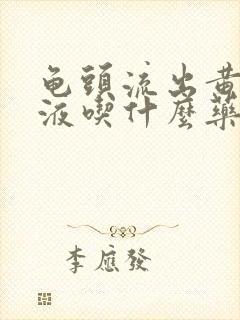 龟頭流出黄
液喫什麼藥
李應發